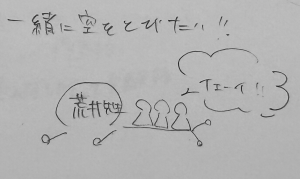 一緒に空をとびたい!!
イエーイ!!
荒井